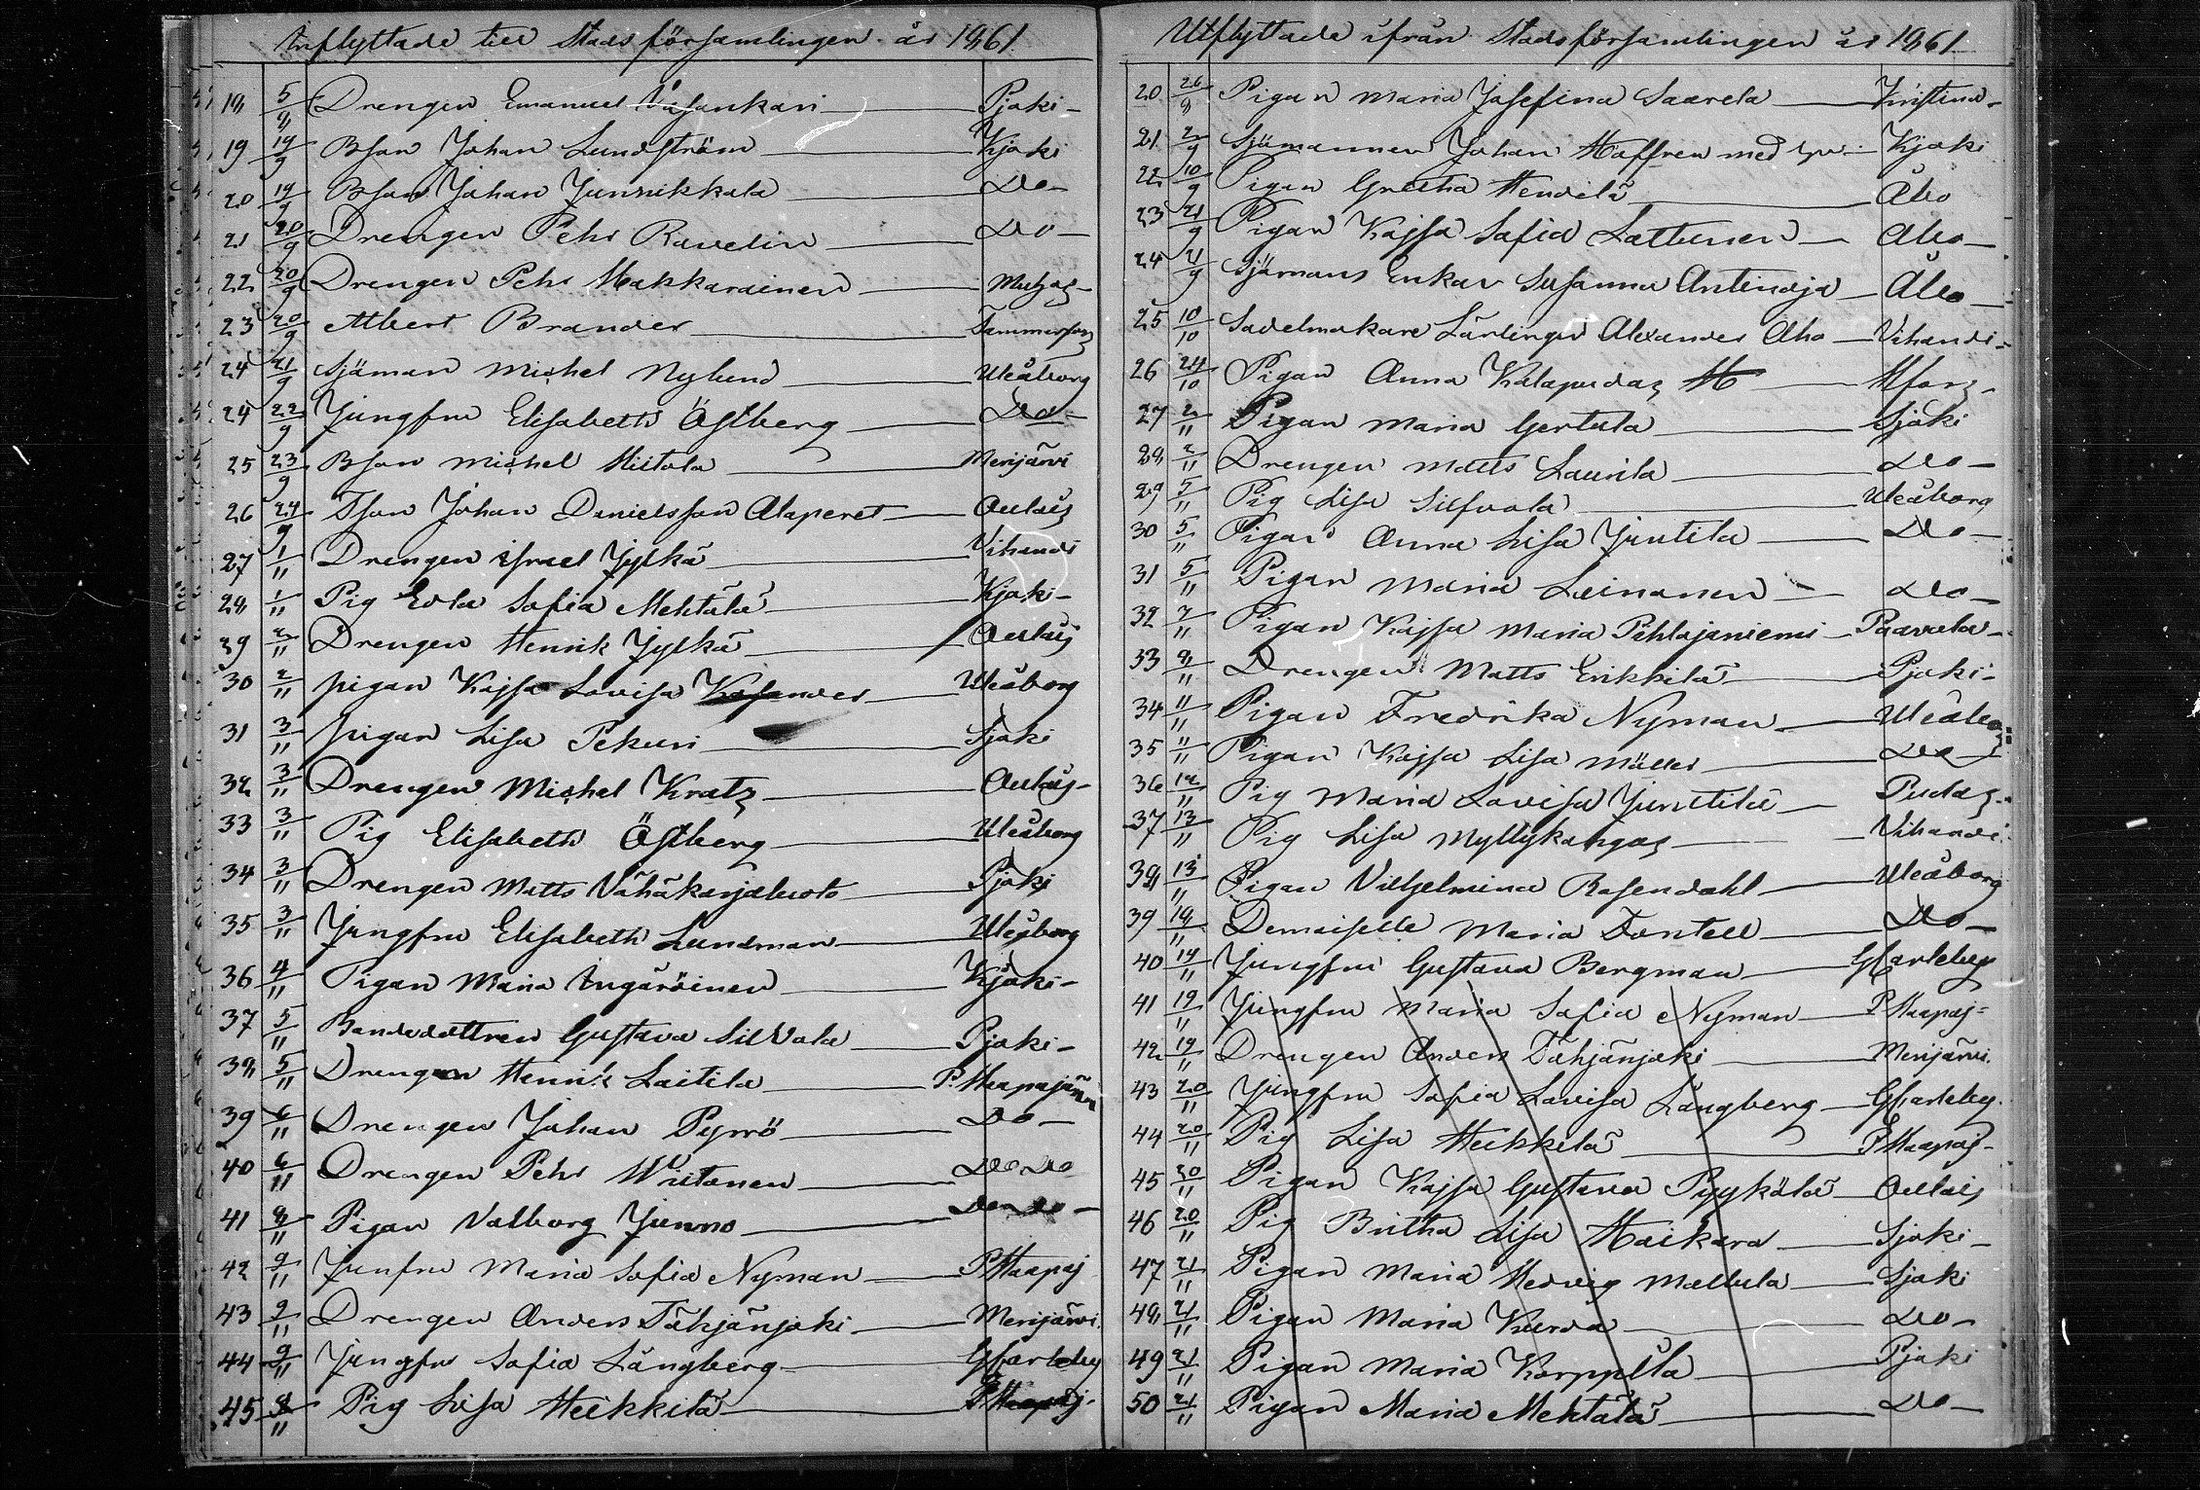 Inflyttade till Stads församlingen år 1861
18 5/9 Drengen Emanuel Pjoki
19 19/9 Bson Johan Lundström Kjoki
20 19/9 Bson Johan Junnikkala Do
21 20/9 Drengen Pehr Ravelin Do
22 20/9 Drengen Pehr Makkarainen Muhos
23 20/9 Albert Brander Tammerfors
24 21/9 Sjöman Michel Nylund Uleåborg
24 22/9 Jungfru Elisabeth Östberg Do
25 23/9 Bson Michel Hiitola Merijärvi
26 24/9 Tson Johan Danielsson Alaperet Oulais
27 1/11 Drengen Israel Jylkä Vihandi
28 1/11 Pig Sofia Mehtälä Kjoki
39 2/11 Drengen Henrik Jylkä Oulais
30 2/11 pigan Kajsa Lovisa Uleåborg
31 3/11 pigan Lisa Pekuri Sjoki
32 3/11 Drengen Michel Kratz Oulais
33 3/11 Pig Elisabeth Östberg Uleåborg
34 3/11 Drengen Matts Pjoki
35 3/11 Jungfru Elisabeth Lundman Uleåborg
36 4/11 Pigan Maria Kjoki
37 5/11 Bondedottren Gustava Silvola Pjoki
38 5/11 Drengen Henrik Laitila P. Haapajärvi
39 6/11 Drengen Johan Pyrrö Do
40 6/11 Drengen Pehr Wiitanen Do Do
41 8/11 Pigan Valborg Junno Do Do
42 9/11 Junfru Maria Sofia Nyman P Haapaj
43 9/11 Drengen Anders Tähjänjoki Merijärvi
44 9/11 Jungfru Sofia Långberg Gkarleby
45 9/11 Pig Lisa Heikkilä P Haapaj
Utflyttade ifrån Stadsförsamlingen år 1861
20 26/8 Pigan Maria Josefina Saarela Kristina
21 2/9 Sjömannen Johan Haffren med Kjoki
22 10/9 Pigan Gretha Hendelä Åbo
23 21/9 Pigan Kajsa Sofia Lattunen Åbo
24 21/9 Sjömans Enkan Susanna Antinoja Åbo
25 10/10 Sadelmakare Lärlingen Alexander Aho Vihandi
26 24/10 Pigan Anna Kalapudas Hfors
27 2/11 Pigan Maria Gertula Sjoki
28 2/11 Drengen Matts Laurila Do
29 5/11 Pig Lisa Silfvola Uleåborg
30 5/11 Pigan Anna Lisa Juntila Do
31 5/11 Pigan Maria Leinonen Do
32 7/11 Pigan Kajsa Maria Pihlajaniemi Paavola
33 9/11 Drengen Matts Erikkilä Pjoki
34 11/11 Pigan Fredrika Nyman Uleåborg
35 11/11 Pigan Kajsa Lisa Müller Do
36 12/11 Pig Maria Lovisa Junttila Pudas
37 13/11 Pig Lisa Myllykangas Vihandi
38 13/11 Pigan Vilhelmina Rosendahl Uleåborg
39 18/11 Demoiselle Maria Fontell Do
40 19/11 Jungfru Gustava Bergman Gkarleby
41 19/11 Jungfru Maria Sofia Nyman P Haapaj
42 19/11 Drengen Anders Tähjänjoki Merijärvi
43 20/11 Jungfru Sofia Lovisa Långberg Gkarleby
44 20/11 Pig Lisa Heikkilä P Haapaj
45 20/11 Pigan Kajsa Gustava Pyykölä Oulais
46 20/11 Pig Britha Lisa Haikara Sjoki
47 21/11 Pigan Maria Hedvig Mattila Sjoki
48 21/11 Pigan Maria Kurda Do
49 21/11 Pigan Maria Korppila Pjoki
50 21/11 Pigan Maria Mehtälä Do